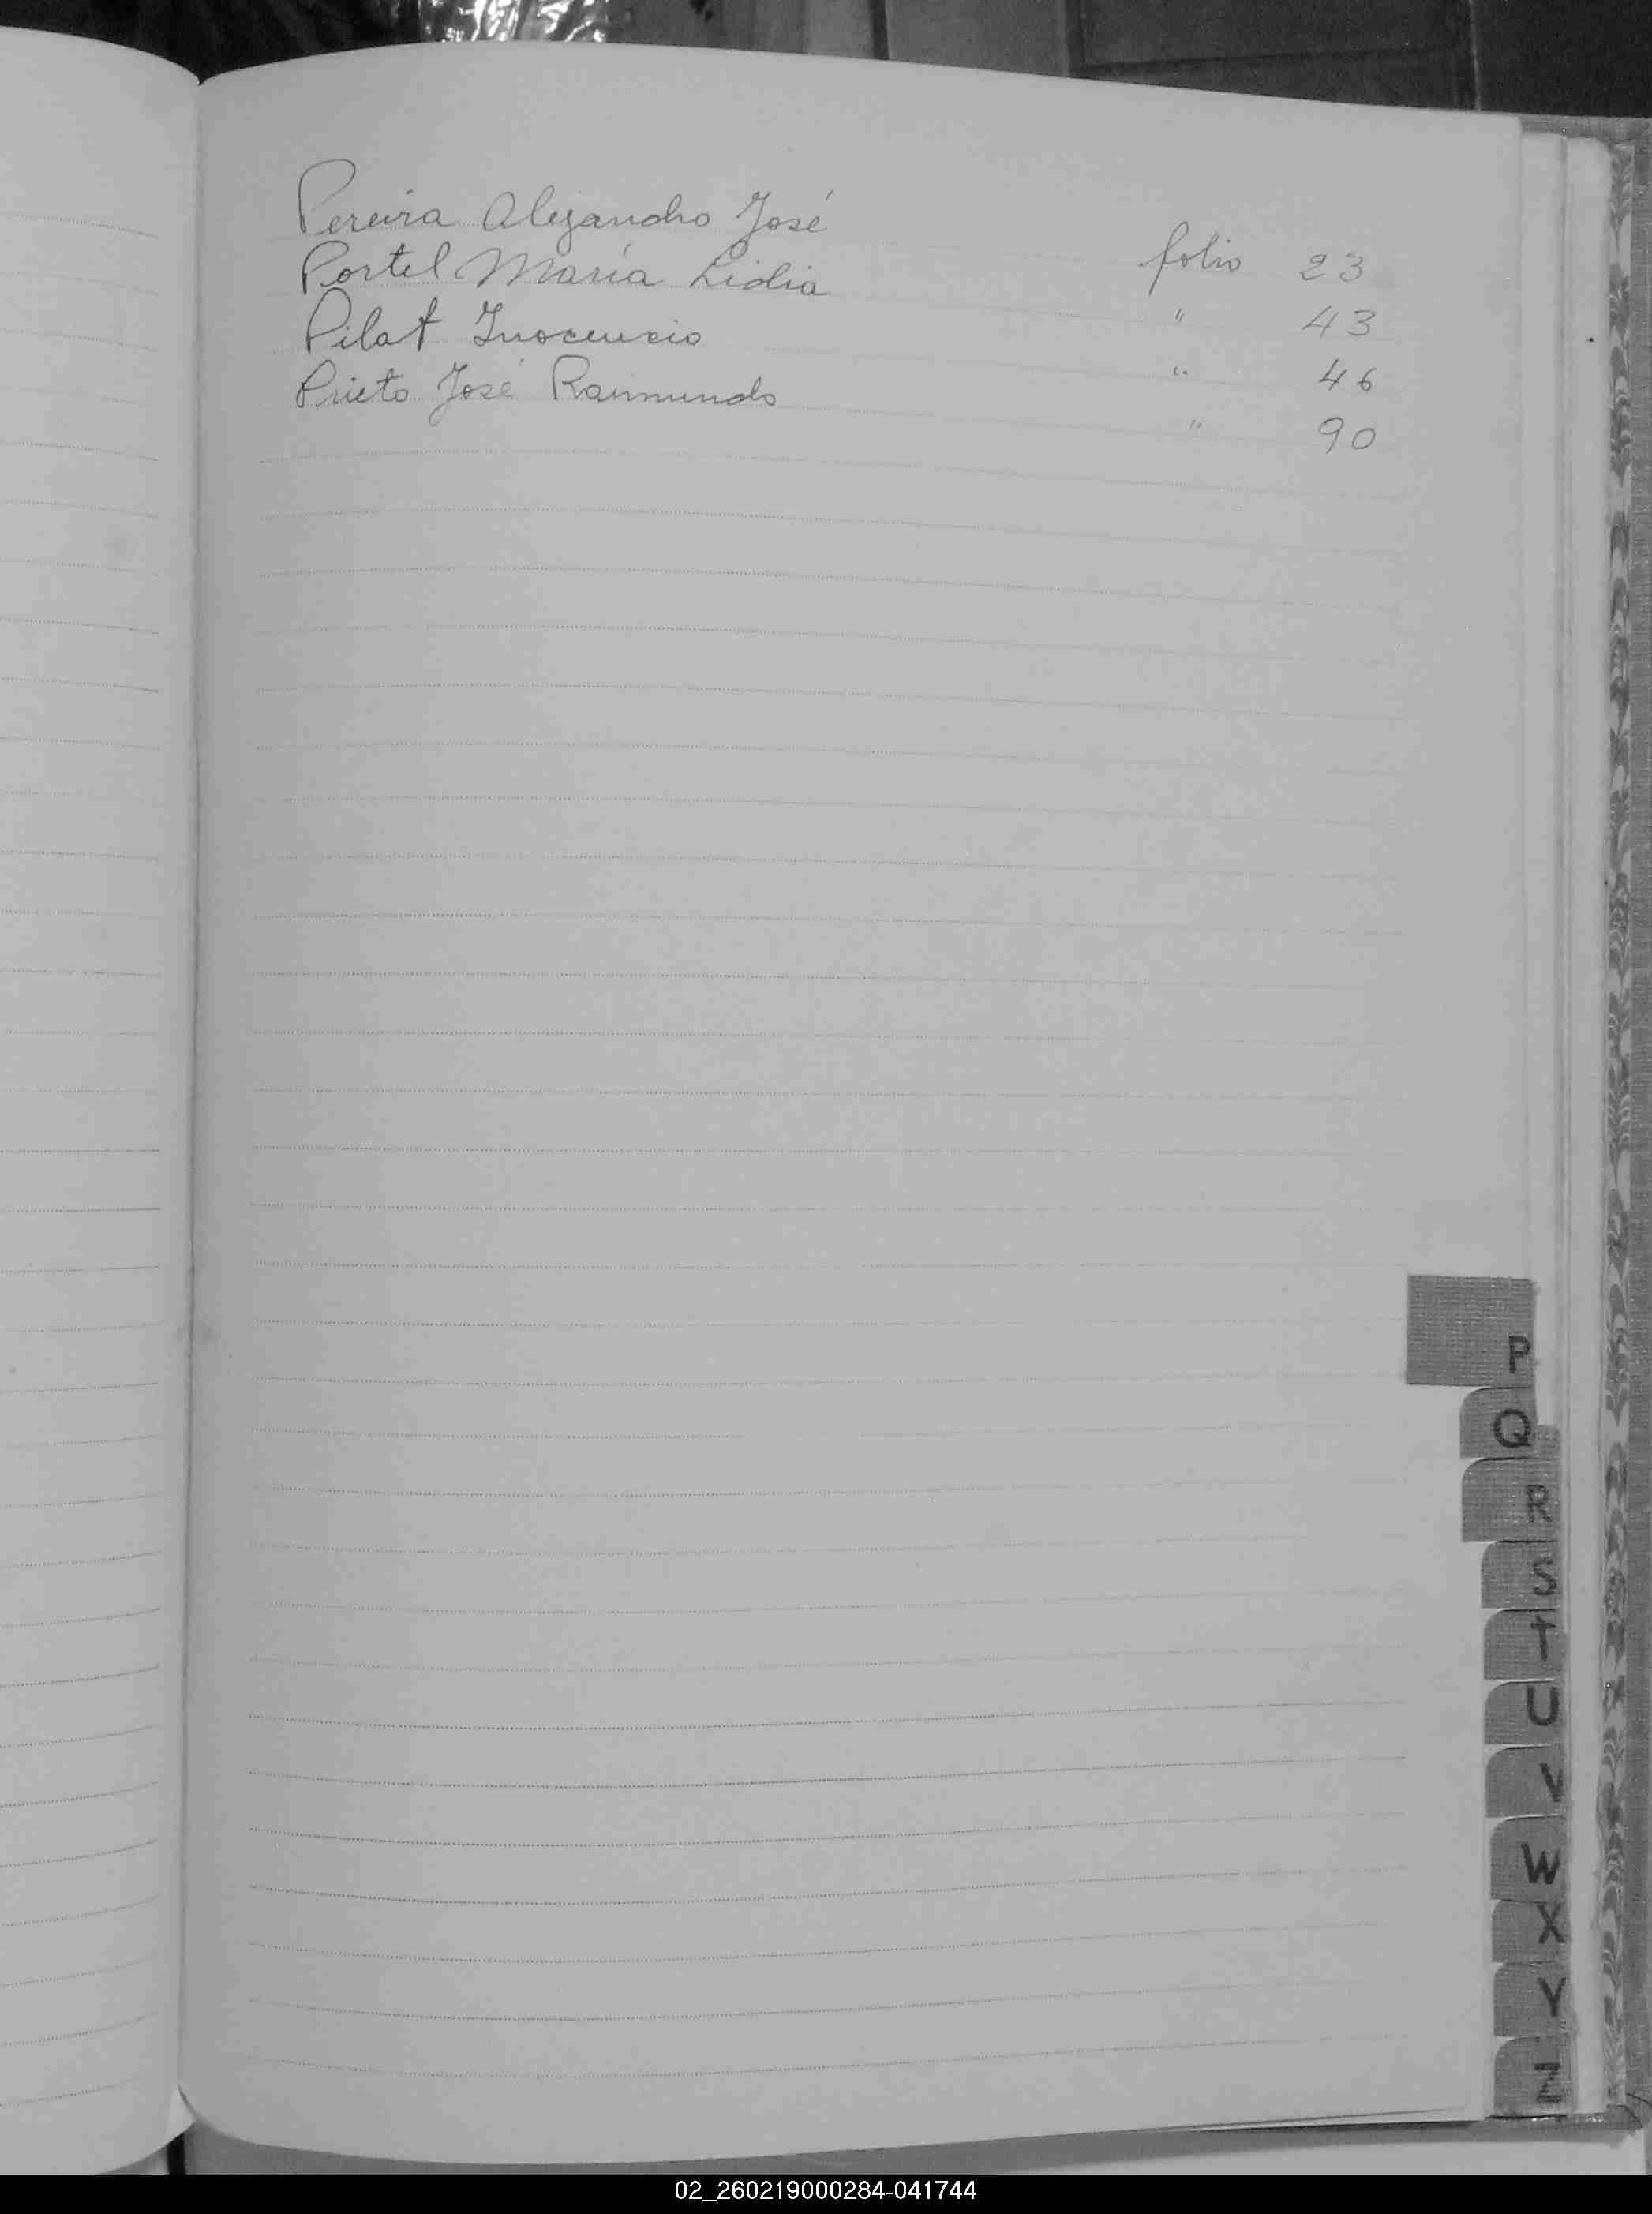 Pereira Alejandro José folio 23
Portel María Lidia " 43
Pilat Inocencio " 46
Prieto José Raimundo " 90
P
Q
R
S
T
U
V
W
X
Y
Z
02_260219000284-041744